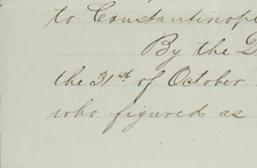 to Constantinople
By the
the 31st of October
who figured as